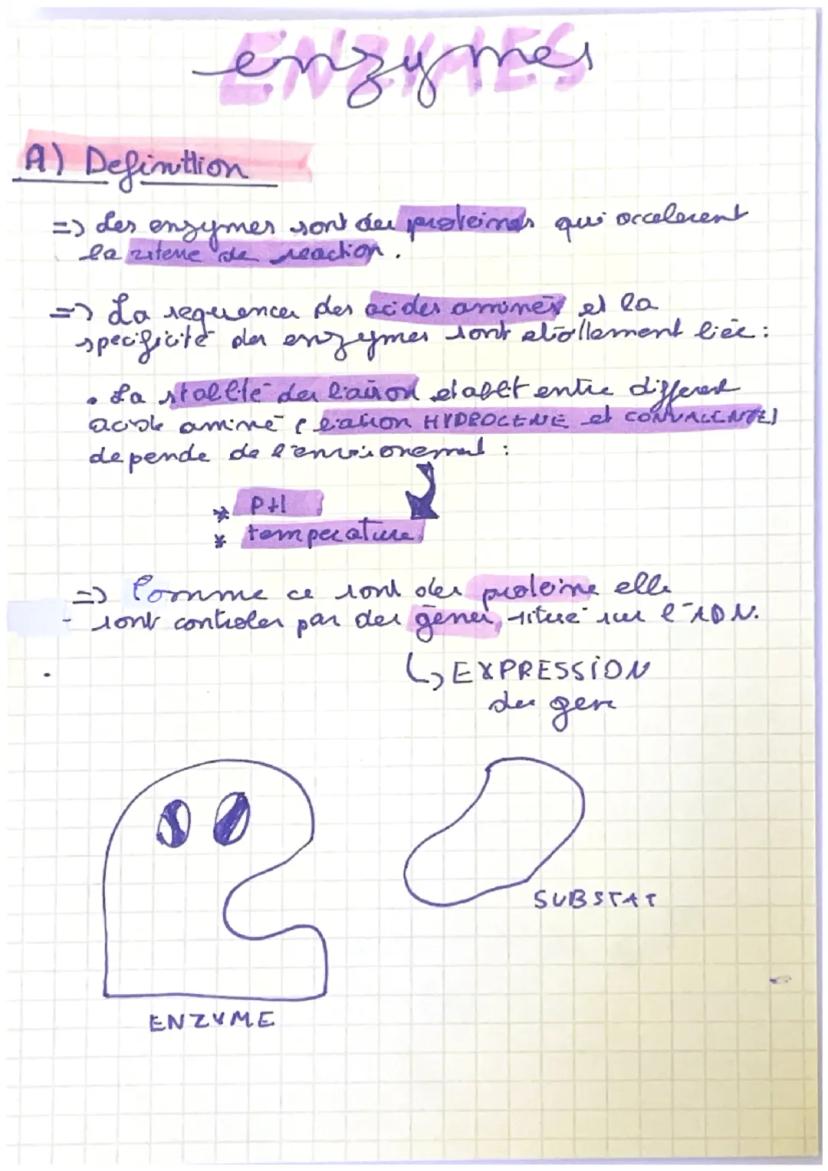 ENZYMES
enzymes
A) Definition
=> Les enzymes sont des proteines qui accelerent
la vitesse de reaction.
=> La sequences des acides aminés et la
specificité des enzymes sont etroitement liée :
• La stabilité des liaison etablit entre different
acide aminé ( liaison HYDROGENE et COVALENTE)
depende de l'environement :
* PH
* temperature
=> Comme ce sont des proteine elle
sont controler par des gènes, situé sur l'ADN.
↳ EXPRESSION
des gen
SUBSTAT
ENZYME